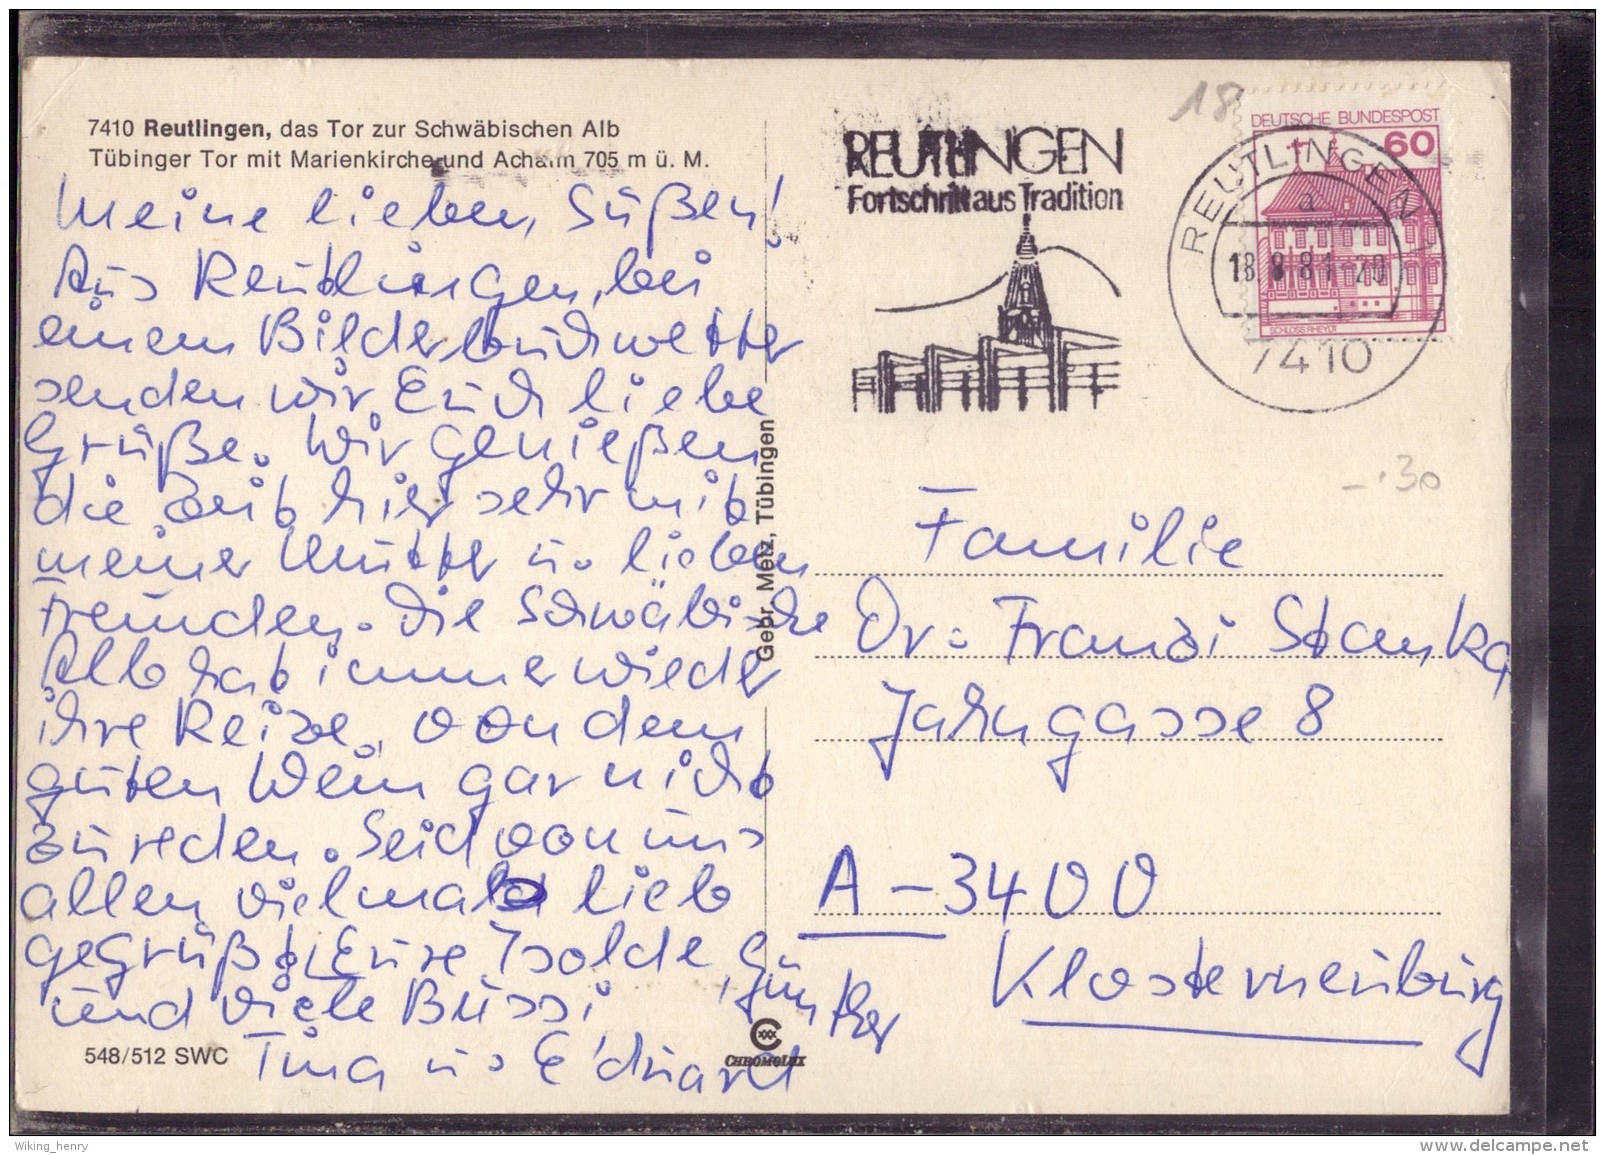 7410 Reutlingen, das Tor zur Schwäbischen Alb
Tübinger Tor mit Marienkirche und Achalm 705 m ü. M.
Meine lieben, Süßen!
Aus Reutlingen, bei
einem Bilderbuchwetter
senden wir Euch liebe
Grüße. Wir genießen
die Zeit hier sehr mit
meiner Mutter u. lieben
Freunden. Die Schwäbische
Alb hat immer wieder
ihre Reize, von dem
guten Wein gar nicht
zu reden. Seid von uns
allen vielmals lieb
gegrüßt Eure Isolde, Günther
und viele Bussi
Tina u. Eduard
548/512 SWC
Gebr. Metz, Tübingen
CHROMOLUX
REUTLINGEN
Fortschritt aus Tradition
18
DEUTSCHE BUNDESPOST
60
SCHLOSS RHEYDT
REUTLINGEN 1
a
18.9.81-20
7410
-.30
Familie
Dr. Franzi Stanka
Jahngasse 8
A-3400
Klosterneuburg
Wiking_henry
www.delcampe.net